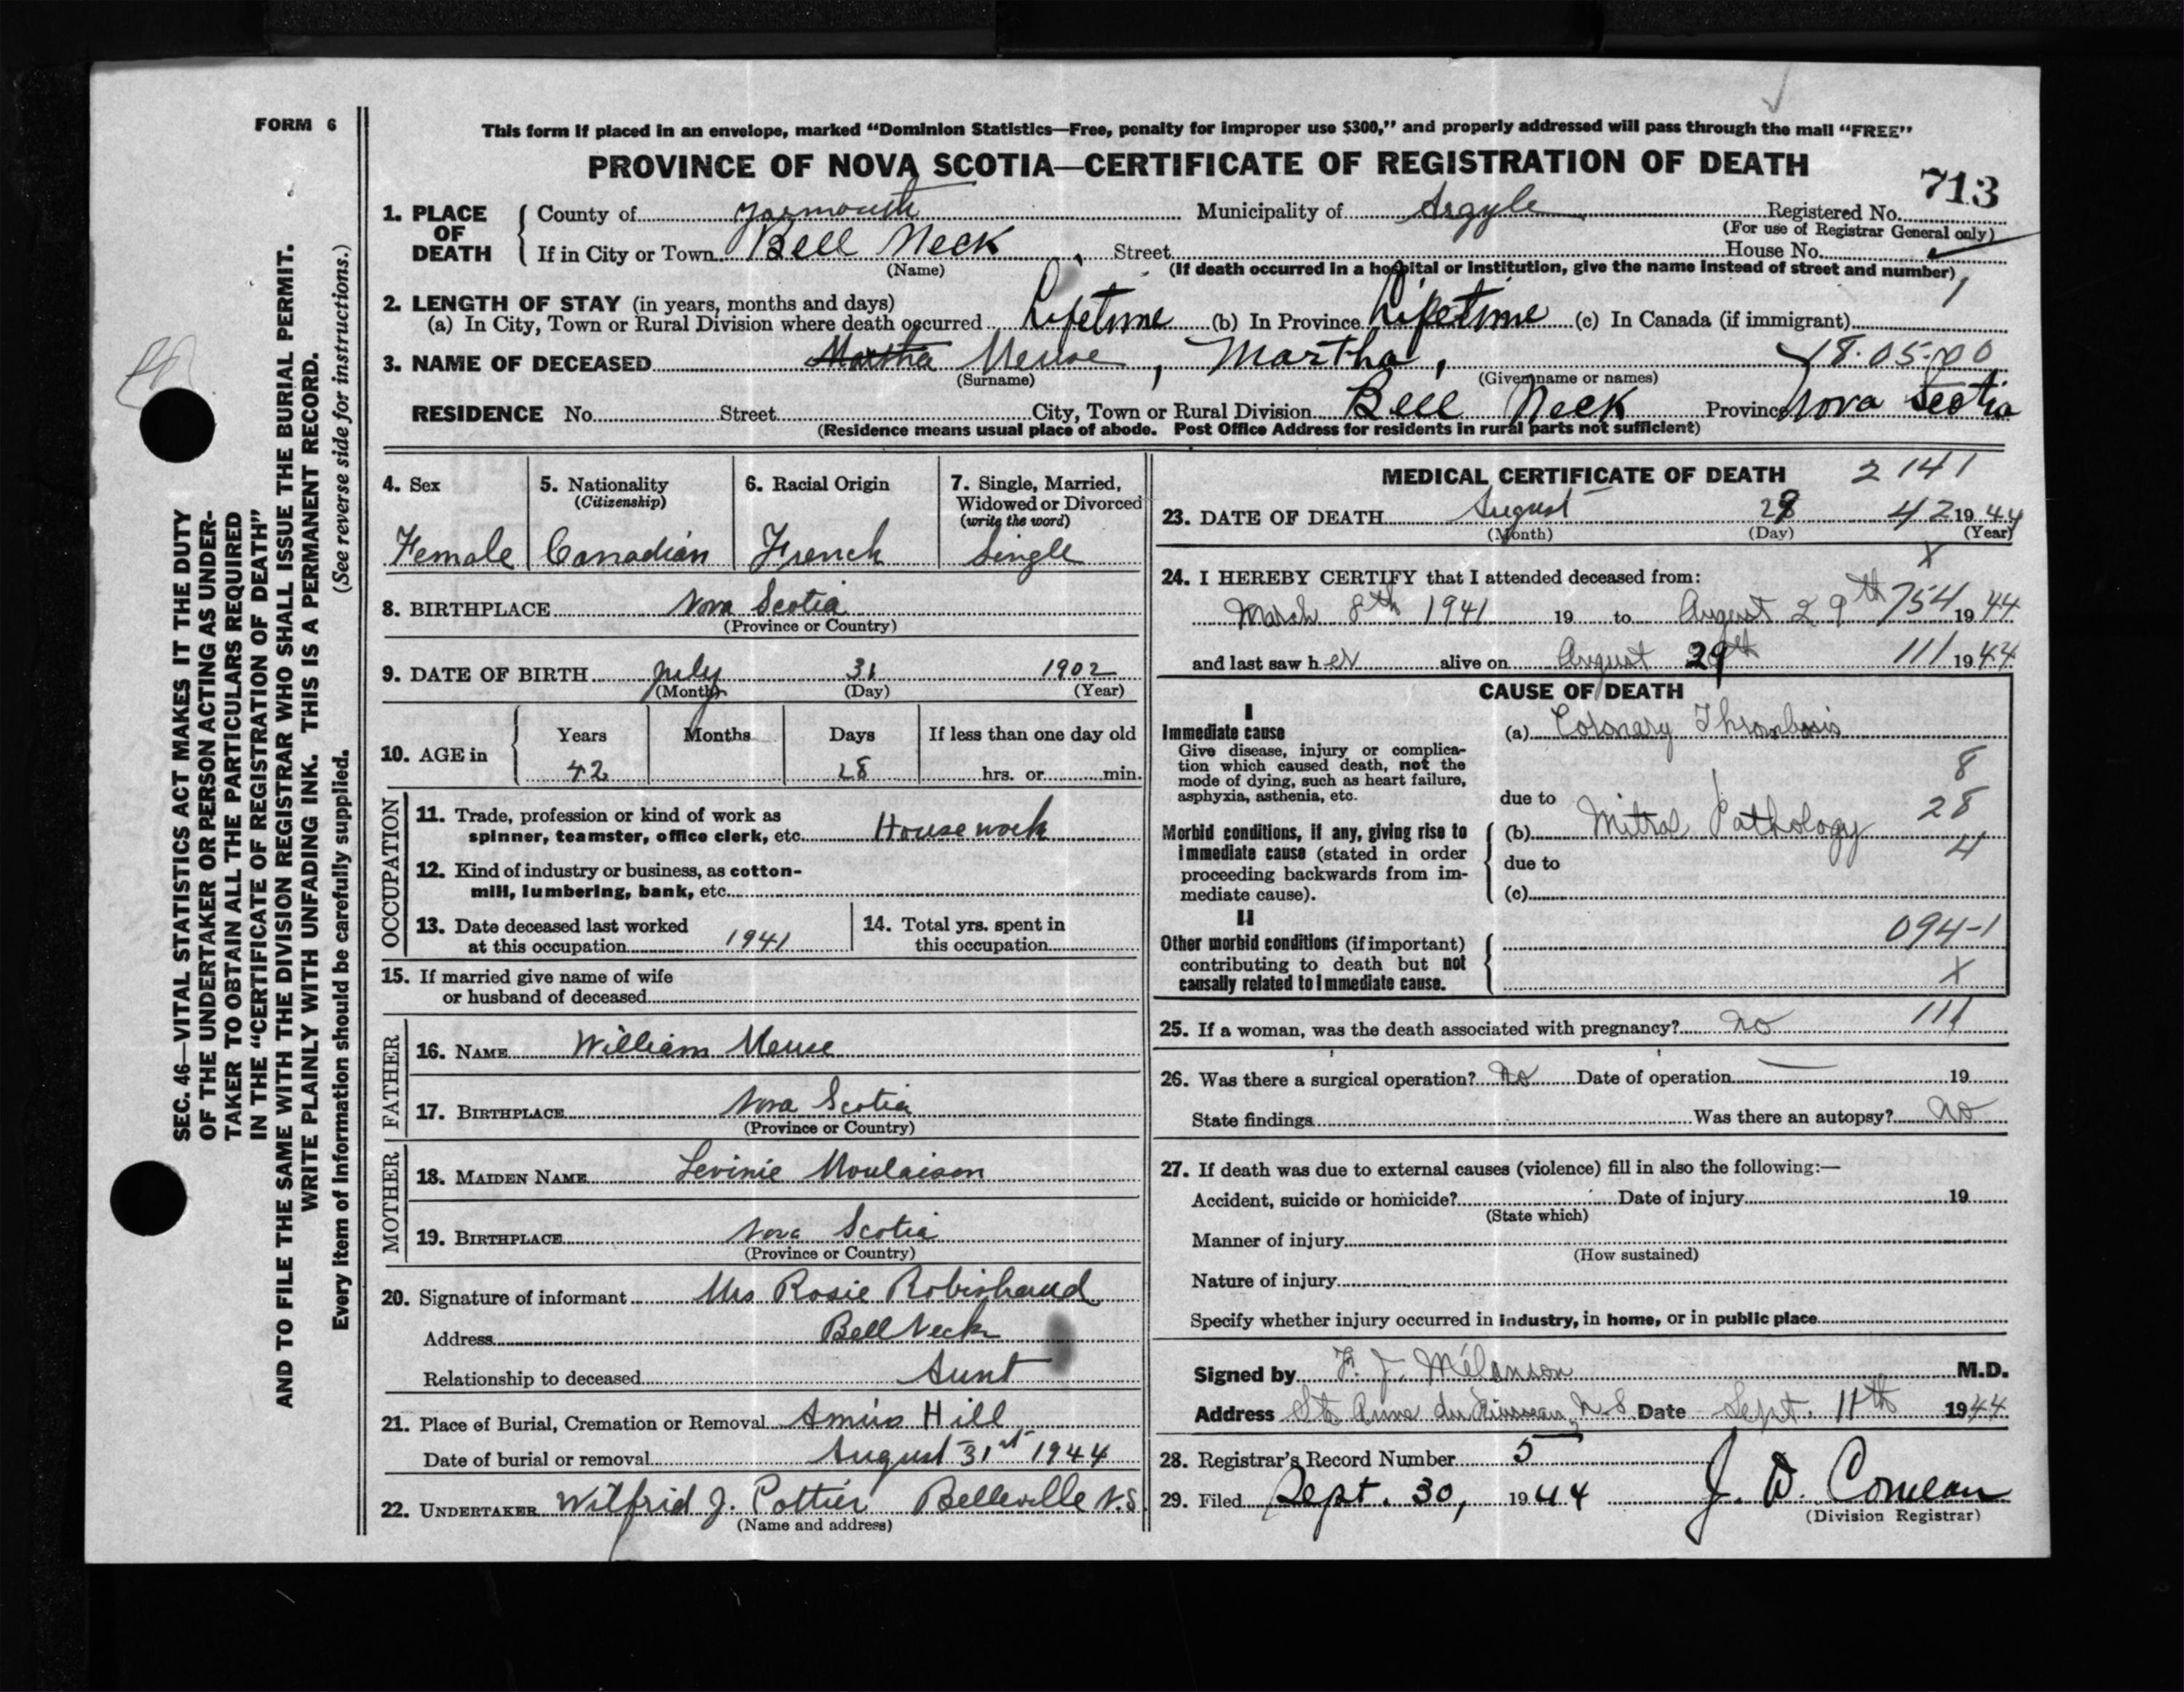 FORM 6
This form if placed in an envelope, marked “Dominion Statistics—Free, penalty for improper use $300,” and properly addressed will pass through the mail “FREE”
PROVINCE OF NOVA SCOTIA—CERTIFICATE OF REGISTRATION OF DEATH
713
1. PLACE OF DEATH
County of Yarmouth Municipality of Argyle Registered No.
(For use of Registrar General only)
If in City or Town Bell Neck, Street House No.
(Name) (If death occurred in a hospital or institution, give the name instead of street and number)
2. LENGTH OF STAY (in years, months and days)
(a) In City, Town or Rural Division where death occurred Lifetime (b) In Province Lifetime (c) In Canada (if immigrant)
3. NAME OF DECEASED Martha Meuse, Martha, 18.05.00
(Surname) (Given name or names)
RESIDENCE No. Street City, Town or Rural Division Bell Neck Province Nova Scotia
(Residence means usual place of abode. Post Office Address for residents in rural parts not sufficient)
4. Sex
Female
5. Nationality
(Citizenship)
Canadian
6. Racial Origin
French
7. Single, Married,
Widowed or Divorced
(write the word)
Single
8. BIRTHPLACE Nova Scotia
(Province or Country)
9. DATE OF BIRTH July 31 1902
(Month) (Day) (Year)
10. AGE in
Years Months Days If less than one day old
42 28 hrs. or min.
OCCUPATION
11. Trade, profession or kind of work as
spinner, teamster, office clerk, etc. House work
12. Kind of industry or business, as cotton-
mill, lumbering, bank, etc.
13. Date deceased last worked
at this occupation 1941
14. Total yrs. spent in
this occupation
15. If married give name of wife
or husband of deceased
FATHER
16. NAME William Meuse
17. BIRTHPLACE Nova Scotia
(Province or Country)
MOTHER
18. MAIDEN NAME Levinie Moulaison
19. BIRTHPLACE Nova Scotia
(Province or Country)
20. Signature of informant Mrs Rosie Robishaud
Address Bell Neck
Relationship to deceased Aunt
21. Place of Burial, Cremation or Removal Amiro Hill
Date of burial or removal August 31st 1944
22. UNDERTAKER Wilfrid J. Pottier Belleville N.S.
(Name and address)
MEDICAL CERTIFICATE OF DEATH 2 141
23. DATE OF DEATH August 29 42 1944
(Month) (Day) (Year)
X
24. I HEREBY CERTIFY that I attended deceased from:
March 8th 1941 19 to August 29th 754 1944
and last saw her alive on August 29th 111 1944
CAUSE OF DEATH
I
Immediate cause
Give disease, injury or complica-
tion which caused death, not the
mode of dying, such as heart failure,
asphyxia, asthenia, etc.
(a) Coronary Thrombosis
8
due to
28
Morbid conditions, if any, giving rise to
immediate cause (stated in order
proceeding backwards from im-
mediate cause).
(b) Mitral Pathology
4
due to
(c)
II
Other morbid conditions (if important)
contributing to death but not
causally related to immediate cause.
094-1
X
25. If a woman, was the death associated with pregnancy? no 111
26. Was there a surgical operation? no Date of operation 19
State findings Was there an autopsy? no
27. If death was due to external causes (violence) fill in also the following:—
Accident, suicide or homicide? Date of injury 19
(State which)
Manner of injury
(How sustained)
Nature of injury
Specify whether injury occurred in industry, in home, or in public place
Signed by F. J. Mélanson M.D.
Address Ste Anne du Ruisseau, N.S. Date Sept. 11th 1944
28. Registrar's Record Number 5
29. Filed Sept. 30, 1944 J. D. Comeau
(Division Registrar)
SEC. 46—VITAL STATISTICS ACT MAKES IT THE DUTY
OF THE UNDERTAKER OR PERSON ACTING AS UNDER-
TAKER TO OBTAIN ALL THE PARTICULARS REQUIRED
IN THE “CERTIFICATE OF REGISTRATION OF DEATH”
AND TO FILE THE SAME WITH THE DIVISION REGISTRAR WHO SHALL ISSUE THE BURIAL PERMIT.
WRITE PLAINLY WITH UNFADING INK. THIS IS A PERMANENT RECORD.
Every item of information should be carefully supplied. (See reverse side for instructions.)